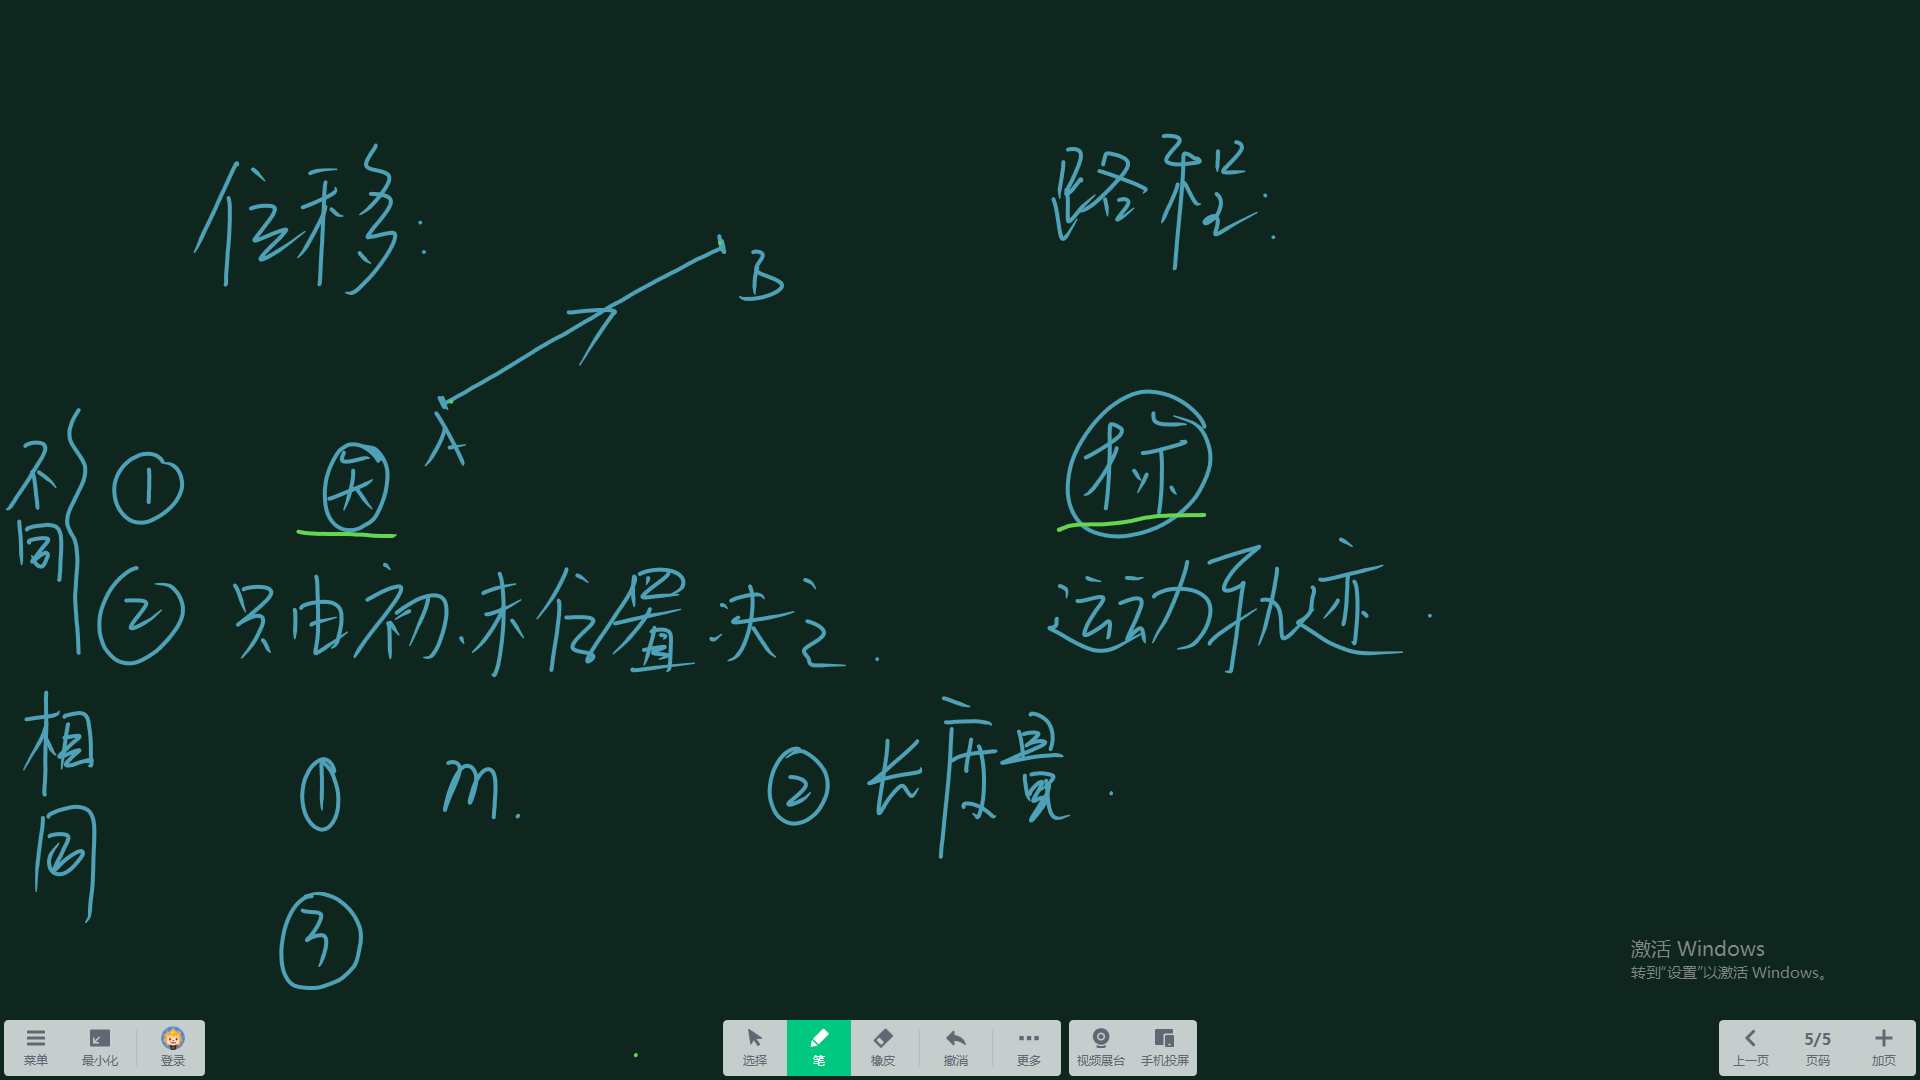 位移: 路程:
B
A
不同 ① 矢 标
② 只由初、末位置决定. 运动轨迹.
相同 ① m. ② 长度量.
③
激活 Windows
转到“设置”以激活 Windows。
菜单 最小化 登录 选择 笔 橡皮 撤消 更多 视频展台 手机投屏 上一页 5/5 页码 加页